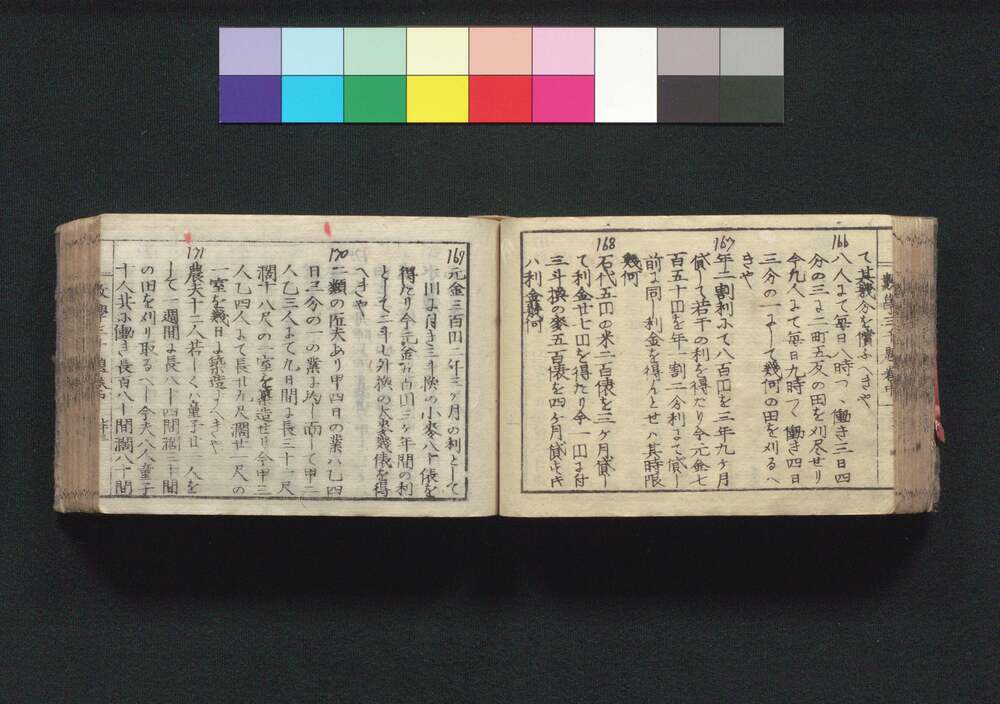 て其幾分を償ふへきや
166
八人にて毎日八時つゝ働き三日四
分の三に二町五反の田を刈尽せり
今九人にて毎日九時つゝ働き四日
三分の一にして幾何の田を刈るへ
きや
167
年二割利にて八百円を三年九ヶ月
貸して若干の利を得たり今元金七
百五十円を年一割二分利にて貸し
前に同し利金を得んとせハ其時限
幾何
168
石代五円の米二百俵を三ヶ月貸し
て利金廿七円を得たり今一円に付
三斗換の麥五百俵を四ヶ月貸すとき
ハ利金幾何
169
元金三百円一年三ヶ月の利として
一円に付き三斗換の小麥八十俵を
得たり今元金五百円三ヶ年間の利
として二斗七升換の大麥幾俵を得
へきや
170
二類の匠夫あり甲四日の業ハ乙四
日三分の一の業に均し而して甲二
人乙三人にて九日間に長三十一尺
濶十八尺の一室を築造せり今甲三
人乙四人にて長廿九尺濶廿一尺の
一室を幾日に築造すへきや
171
農夫十二人若しくハ童子廿一人を
して一週間に長八十四間濶三十間
の田を刈り取るへし今夫八人童子
十人共に働き長百八十間濶八十間